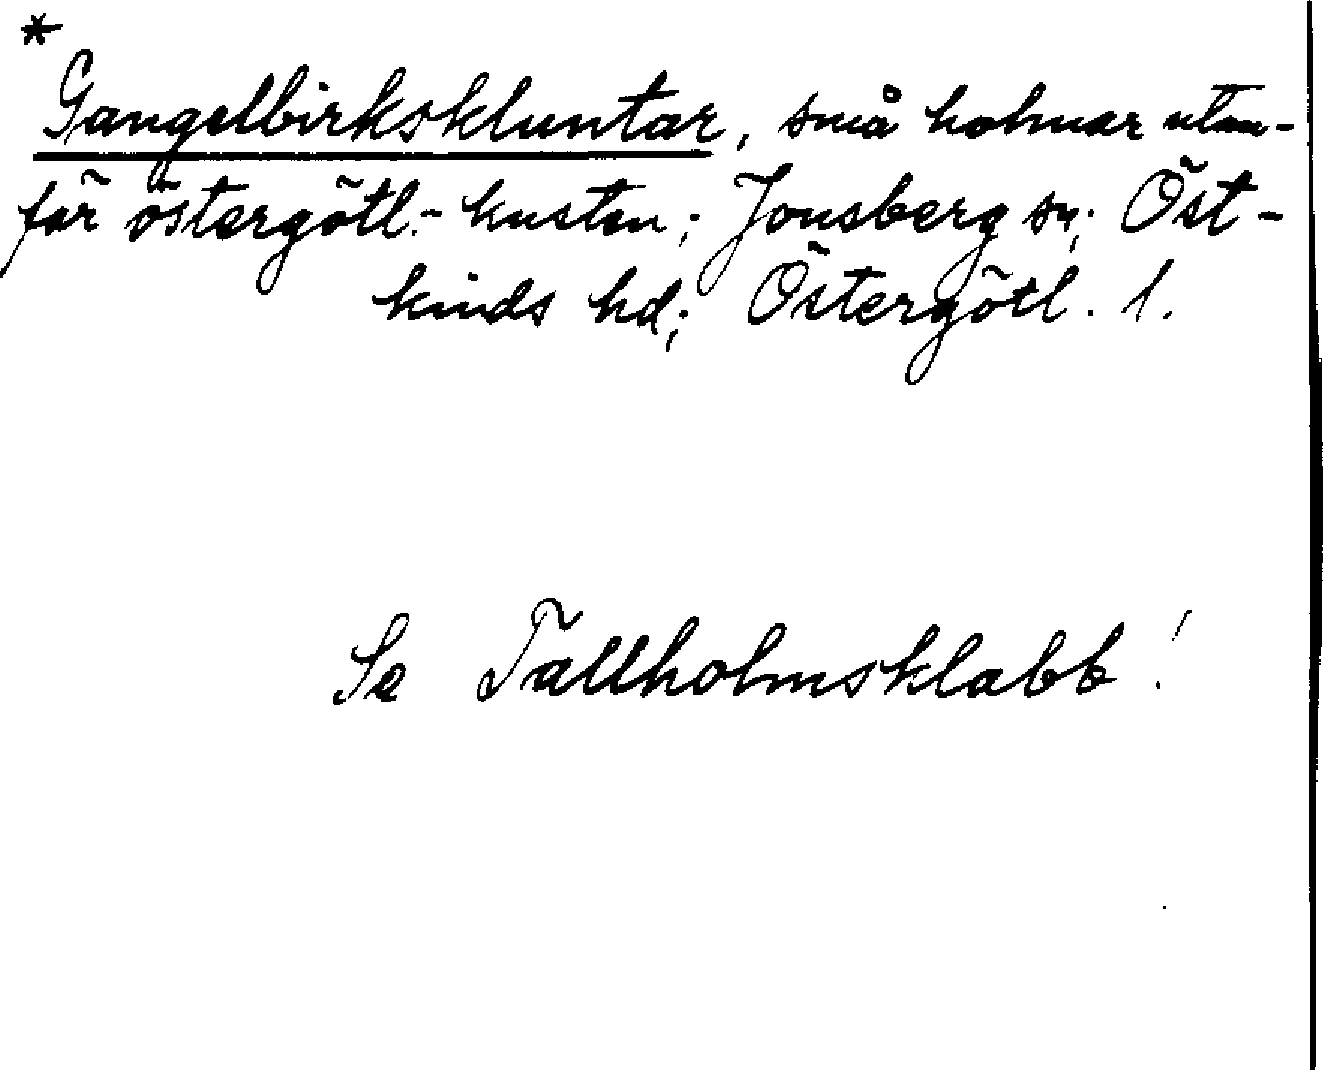 *
Gangelbirkskluntar, små holmar utan-
för östergötl.- kusten; Jonsberg sn; Öst-
kinds hd; Östergötl. l.
Se Tallholmsklabb!